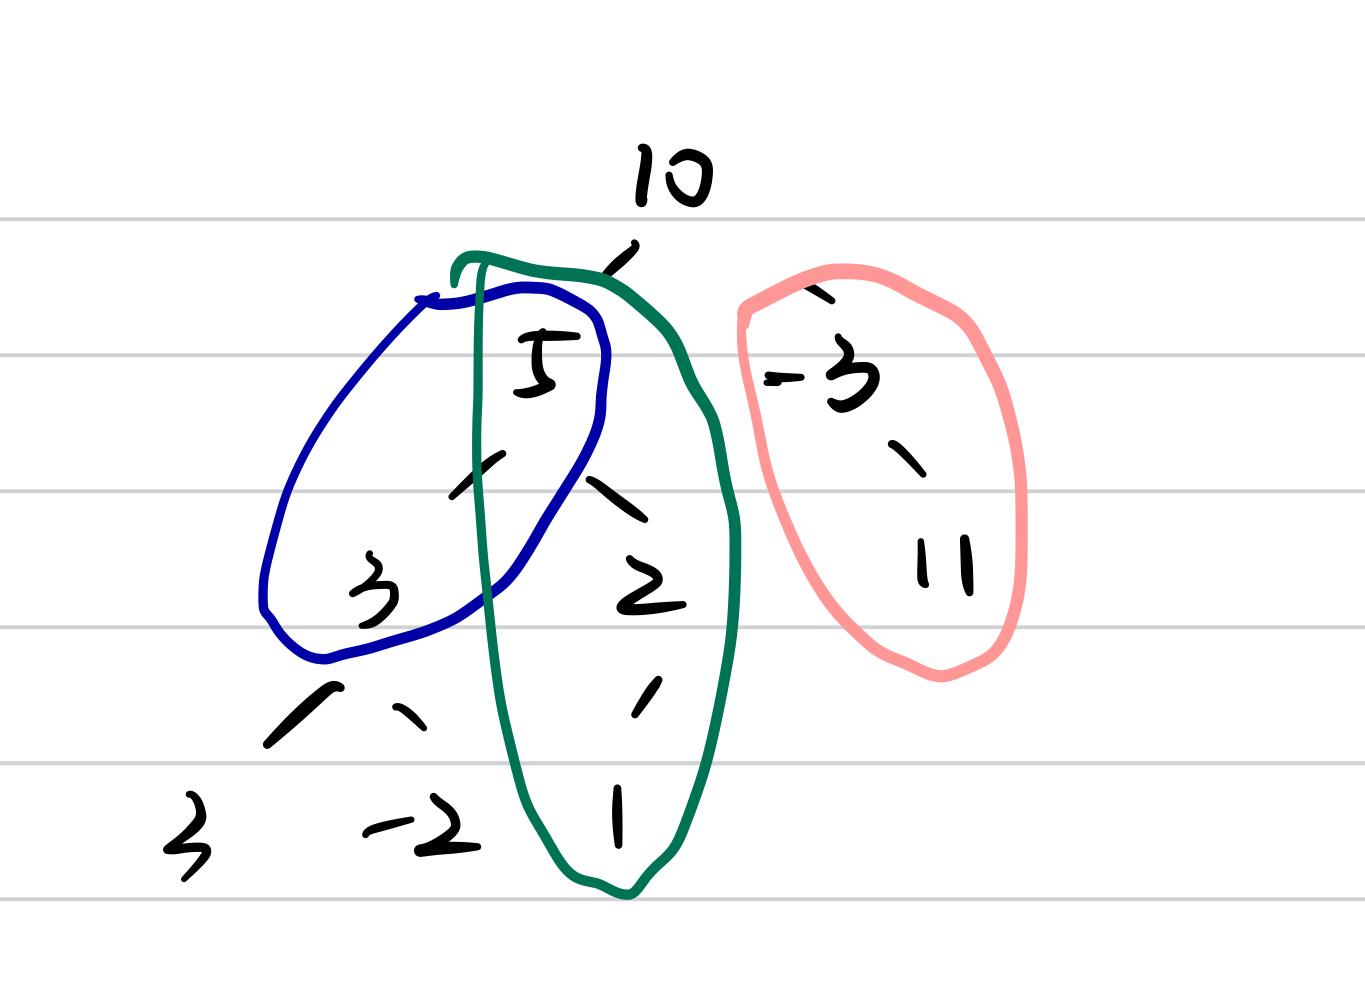 10
5 -3
3 2 11
3 -2 1